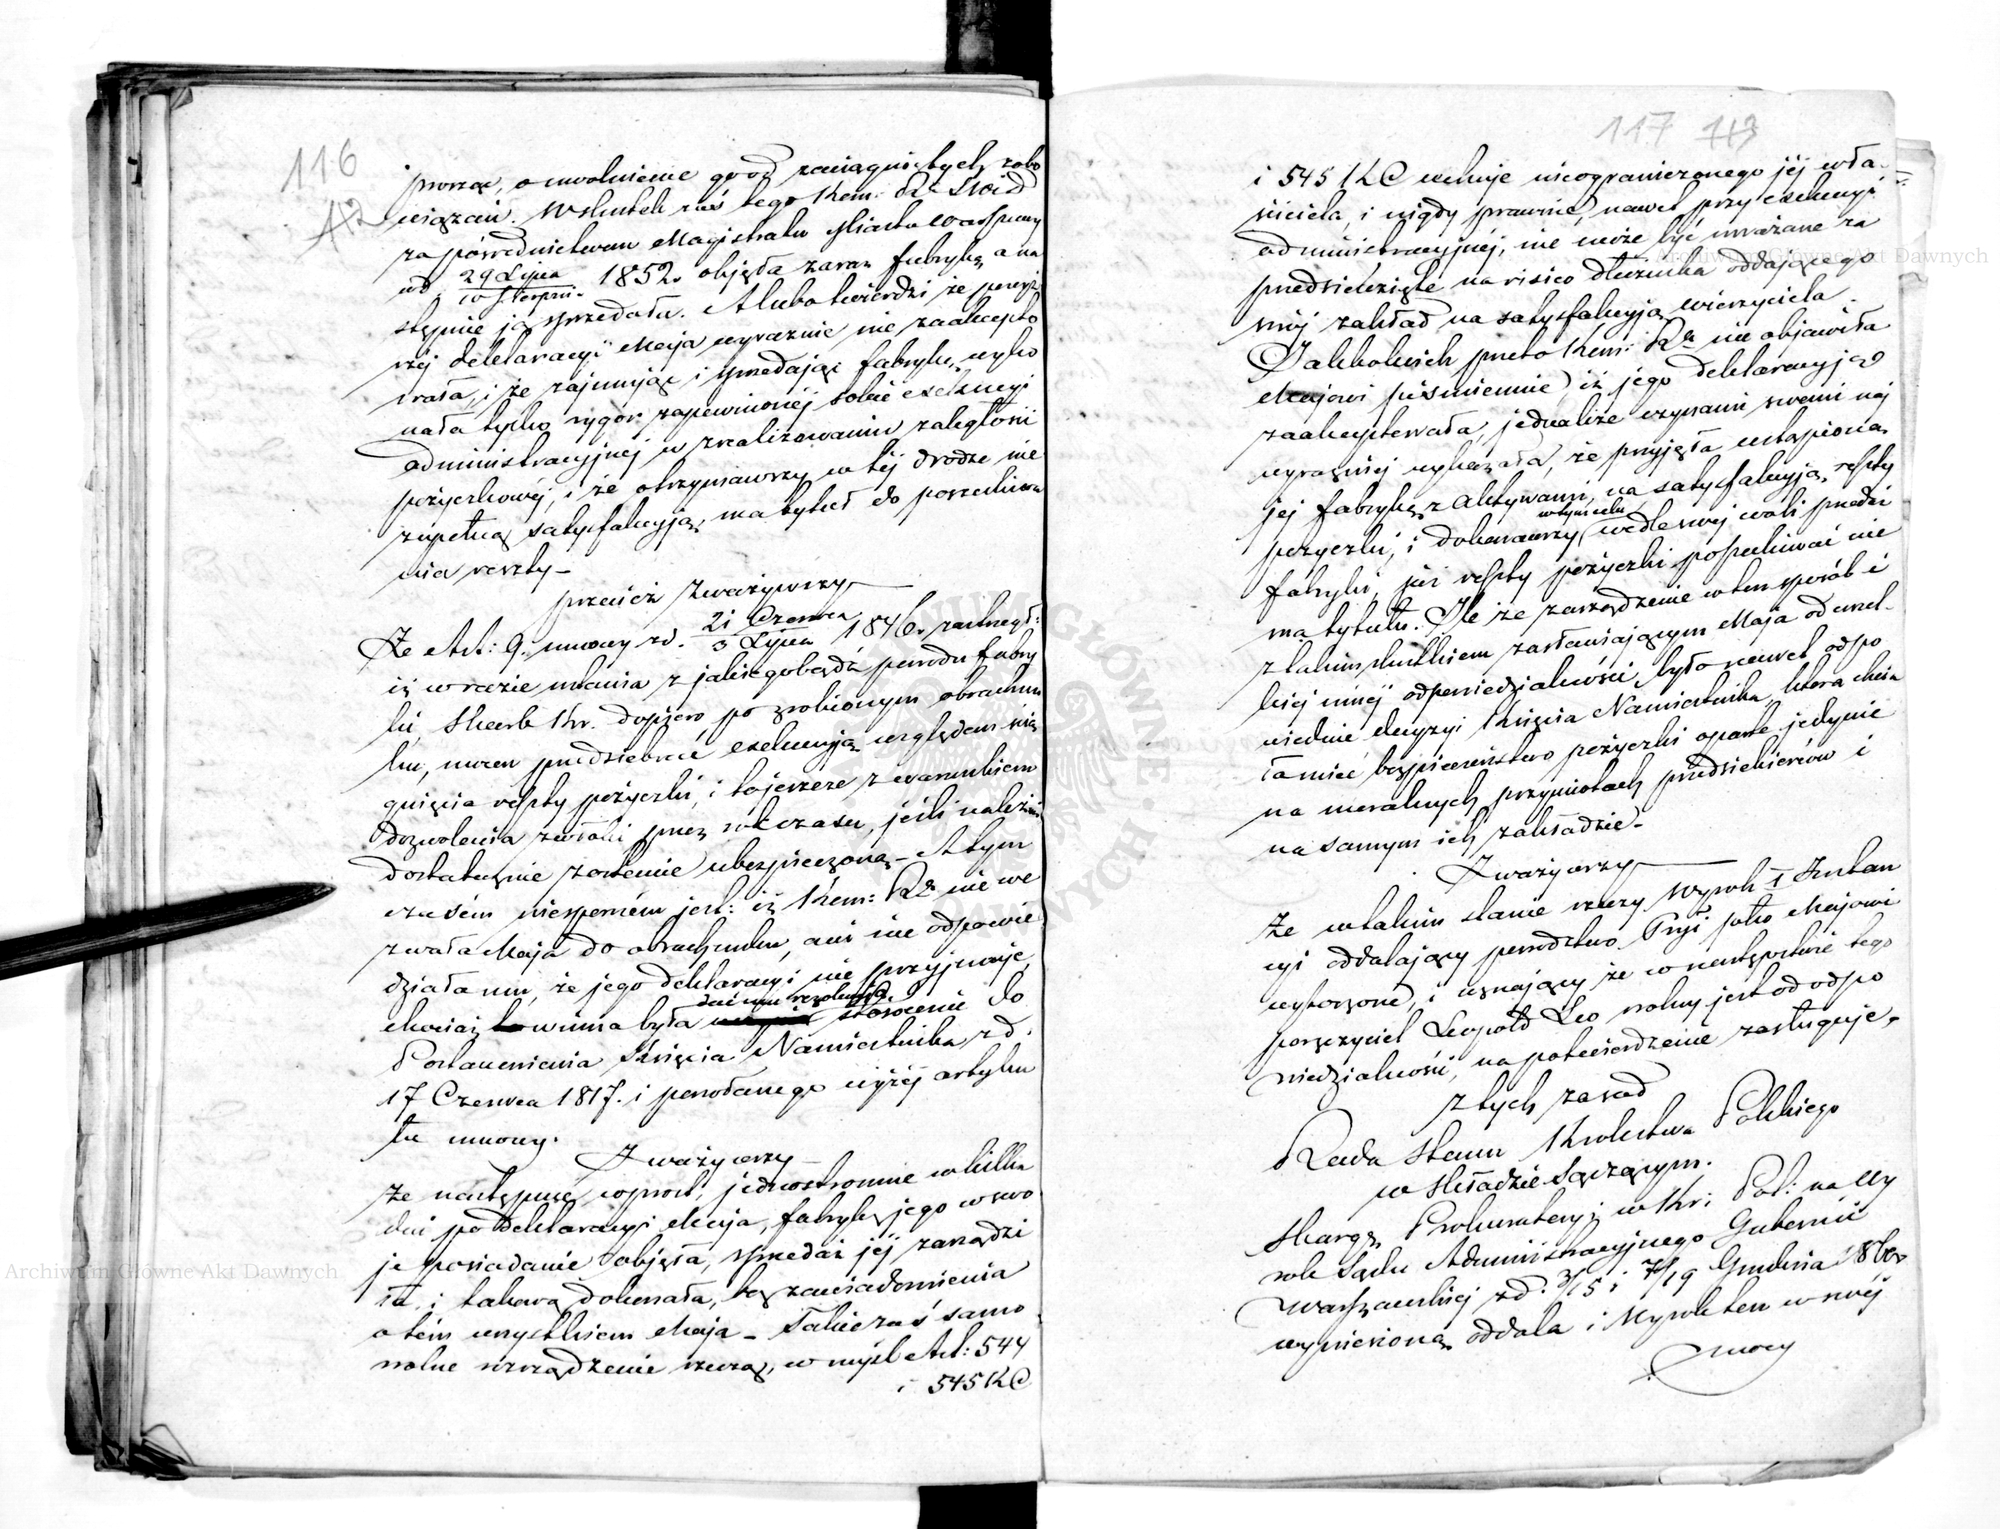 116
112
prosząc, o uwolnienie go od zaciągniętych zobo
wiązań. Wskutek zaś tego Kom: Rz: Skar
za pośrednictwem Magistratu Miasta Warszawy
wd. 29 Lipca / 10 Sierpni. 1852. objęła zaraz fabrykę a na
stępnie ją sprzedała. A lubo twierdzi że powyż
széj deklaracyi Maja wyraźnie nie zaakcepto
wała, i że zajmując i sprzedając fabrykę, wyko
nała tylko rygor zapewnionéj sobie exekucyi
administracyjnéj w zrealizowaniu zaległości
pożyczkowéj, i że otrzymawszy w téj drodze nie
zupełną satysfakcyją, ma tytuł do poszukiwa
nia reszty –
przecież Zważywszy
Że Art: 9. umowy zd. 21 Czerwca / 3 Lipca 1846. zastrzegł:
iż w razie ustania z jakiegobądź powodu fabry
ki, Skarb Kr. dopiero po zrobionym obrachun
ku, mocen przedsiebrać exekucyją względem ścią
gnięcia reszty pożyczki, i to jeszcze z warunkiem
dozwolenia zwłoki przez rok czasu, jeśli należność
dostatecznie zostanie ubezpieczoną – A tym
czasem niespornem jest: iż Kom: Rz: nie we
zwała Maja do obrachunku, ani nie odpowie
działa mu, że jego deklaracyi nie przyjmuje,
chociaż winna była stosownie do
dać mu rezolucyą
Postanowienia Księcia Namiestnika zd.
17 Czerwca 1817. i powołanego wyżéj artyku
łu umowy.
Zważywszy –
że następnie wprost, jednostronnie w kilka
dni po deklaracyi Maja, fabrykę jego w swo
je posiadanie objęła, sprzedaż jéj zarządzi
ła, i takową dokonała, bez zawiadomienia
o tém wszystkiem Maja – Takie zaś samo
wolne rozrządzenie rzeczą, w myśl Art: 544
i 545 KC
117 113
i 545 KC cechuje nieograniczonego jéj wła=
ściciela, i nigdy prawnie, nawet przy exekucyi
administracyjnéj, nie może być uważane za
przedsięwzięte na risico dłużnika oddającego
swój zakład na satysfakcyją wierzyciela.
Jakkolwiek przeto Kom: Rz: nie objawiła
Majowi piśmiennie, iż jego deklaracyją
zaakceptowała, jednakże czynami swemi naj
wyraźniéj wykazała, że przyjęła ustąpioną
jej fabrykę z aktywami, na satysfakcyją, reszty
pożyczki, i dokonawszy wedle swej woli przedaż
w tym celu
fabryki, już reszty pożyczki poszukiwać nie
ma tytułu. Ile że zarządzenie w ten sposób i
z takim skutkiem zasłaniającym Maja od wszel-
kiéj innéj odpowiedzialności, było nawet odpo
wiednie decyzyi Księcia Namiestnika, która chcia
ła mieć bezpieczeństwo pożyczki oparte jedynie
na moralnych przymiotach przedsiebierców i
na samym ich zakładzie –
Zważywszy
Że w takim stanie rzeczy Wyrok I Instan
cyi oddalający powództwo Prgi jako Majowi
wytoczone, i uznający że w następstwie tego
poręczyciel Leopold Leo wolny jest od odpo
wiedzialności, na potwierdzenie zasługuje.
z tych zasad
Rada Stanu Królestwa Polskiego
w Składzie Sądzącym.
Skargę Prokuratoryi w Kr: Pol: na Wy
rok Sądu Administracyjnego Gubernii
Warszawskiéj zd. 3/15 i 7/19 Grudnia 1860
wyniesioną oddala i Wyrok ten w swéj
mocy